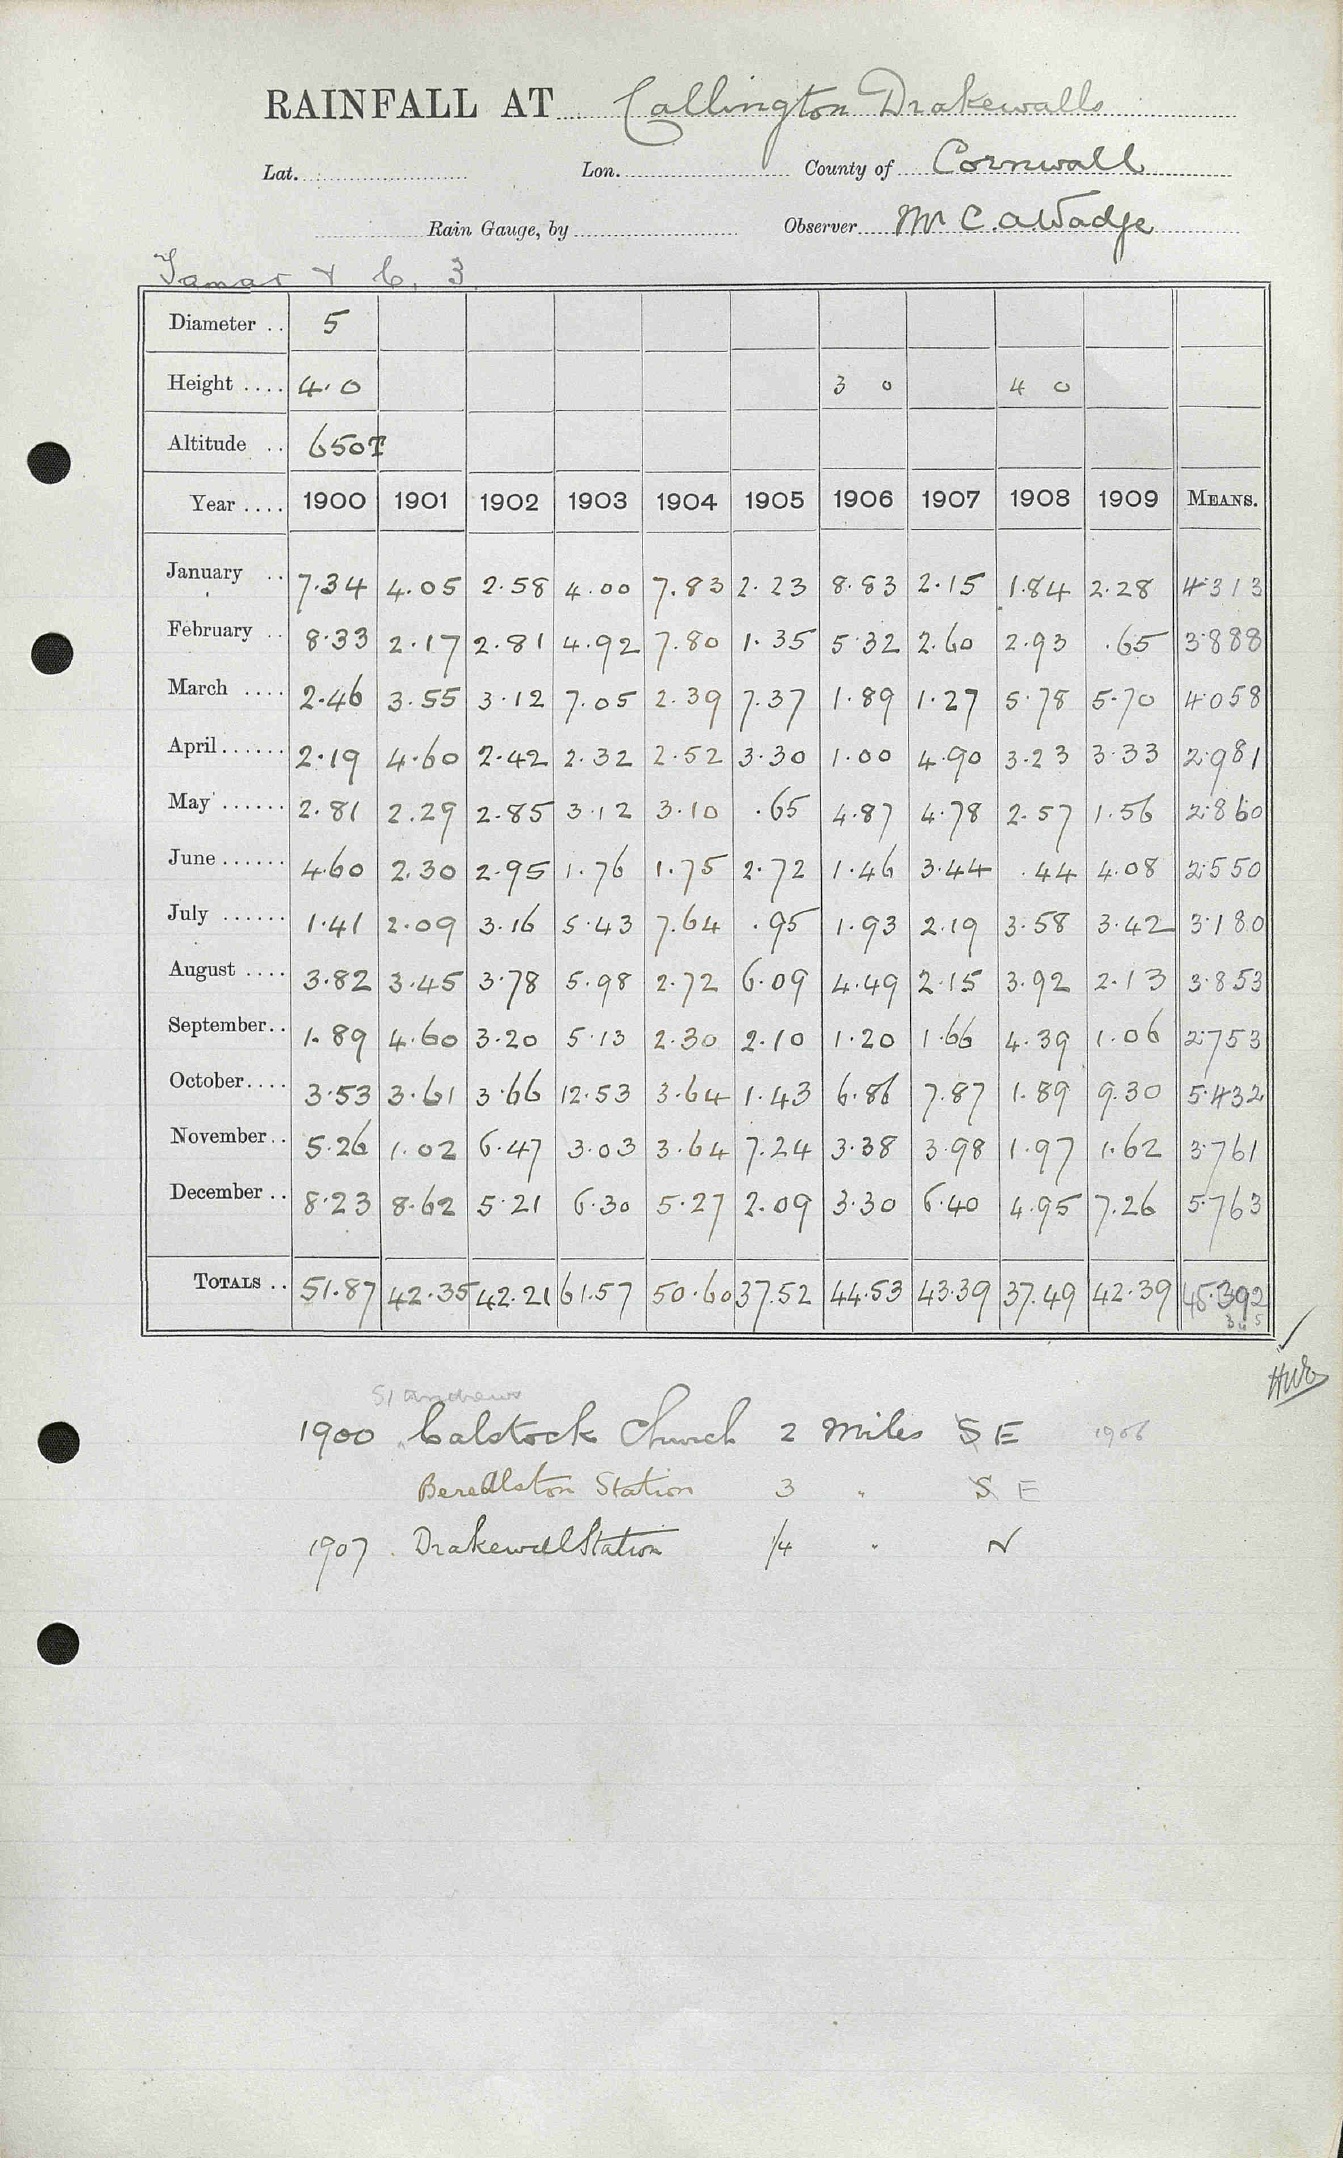 RAINFALL AT Callington Drakewalls
Lat. Lon. County of Cornwall
Rain Gauge, by Observer Mr C. A Wadge
Tamar & C. 3.
Diameter .. 5
Height .... 4.0 3 0 4 0
Altitude .. 650T
Year .... 1900 1901 1902 1903 1904 1905 1906 1907 1908 1909 MEANS.
January .. 7.34 4.05 2.58 4.00 7.83 2.23 8.83 2.15 1.84 2.28 4.313
February .. 8.33 2.17 2.81 4.92 7.80 1.35 5.32 2.60 2.93 .65 3.888
March .... 2.46 3.55 3.12 7.05 2.39 7.37 1.89 1.27 5.78 5.70 4.058
April ...... 2.19 4.60 2.42 2.32 2.52 3.30 1.00 4.90 3.23 3.33 2.981
May ...... 2.81 2.29 2.85 3.12 3.10 .65 4.87 4.78 2.57 1.56 2.860
June ...... 4.60 2.30 2.95 1.76 1.75 2.72 1.46 3.44 .44 4.08 2.550
July ...... 1.41 2.09 3.16 5.43 7.64 .95 1.93 2.19 3.58 3.42 3.180
August .... 3.82 3.45 3.78 5.98 2.72 6.09 4.49 2.15 3.92 2.13 3.853
September.. 1.89 4.60 3.20 5.13 2.30 2.10 1.20 1.66 4.39 1.06 2.753
October.... 3.53 3.61 3.66 12.53 3.64 1.43 6.86 7.87 1.89 9.30 5.432
November.. 5.26 1.02 6.47 3.03 3.64 7.24 3.38 3.98 1.97 1.62 3.761
December .. 8.23 8.62 5.21 6.30 5.27 2.09 3.30 6.40 4.95 7.26 5.763
TOTALS .. 51.87 42.35 42.21 61.57 50.60 37.52 44.53 43.39 37.49 42.39 45.392
St Andrews
1900 Calstock Church 2 Miles S E 1906
BereAlston Station 3 " S E
1907 . Drakewall Station 1/4 " N